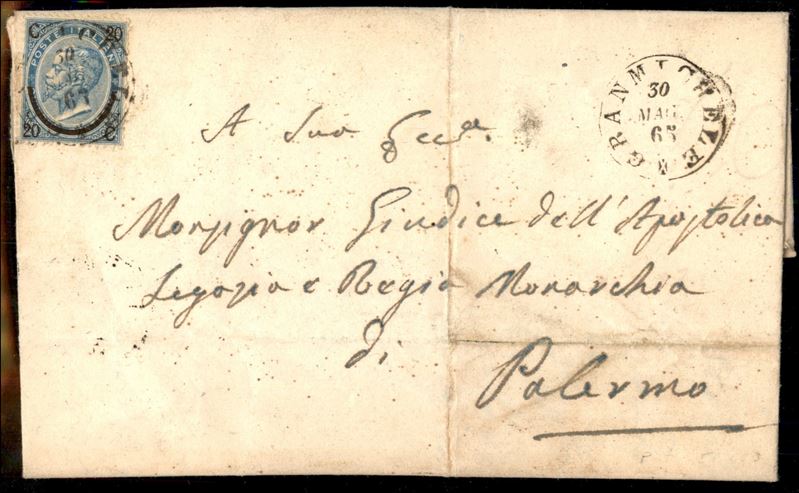 C 20
POSTE ITALIANE
30
20 C
GRANMICHELE
30
MAG
65
A Sua Ecc.a
Monsignor Giudice dell'Apostolica
Legazia e Regia Monarchia
di
Palermo